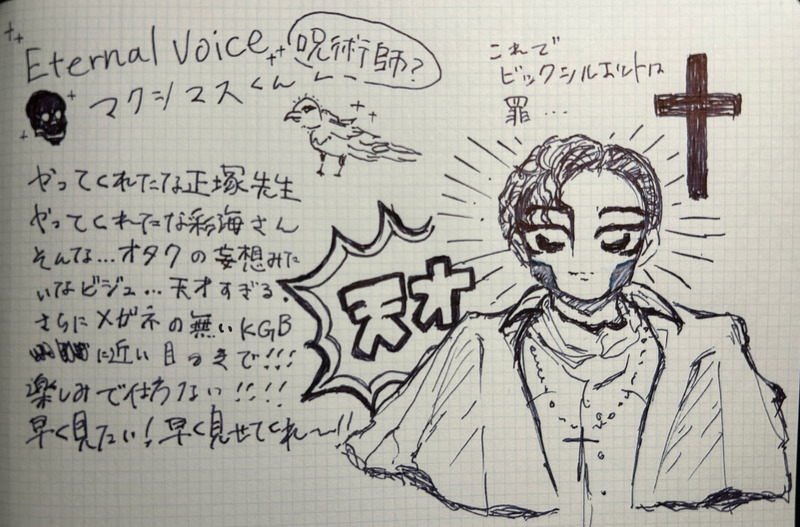 Eternal Voice
呪術師?
マクシマスくん
やってくれたな正塚先生
やってくれたな彩海さん
そんな…オタクの妄想みた
いなビジュ…天才すぎる。
さらにメガネの無いKGB
に近い目つきで!!!
楽しみで仕方ない!!!!
早く見たい!早く見せてくれ〜!!
天才
これで
ビックシルエットは
罪…